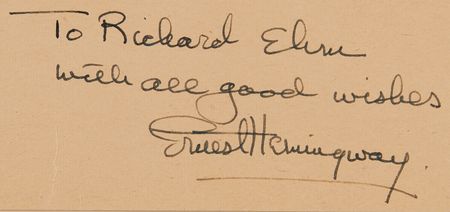 To Richard Ehru
with all good wishes
Ernest Hemingway.